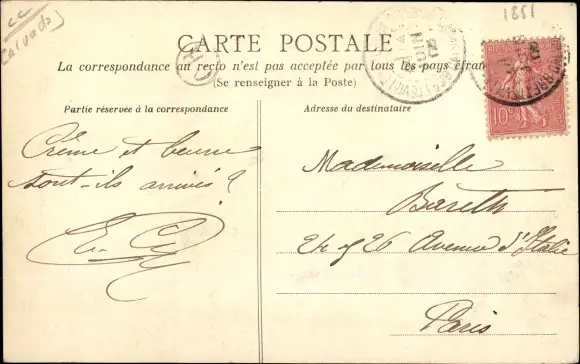 Calvados
1851
CARTE POSTALE
La correspondance au recto n'est pas acceptée par tous les pays étran
(Se renseigner à la Poste)
10
Partie réservée à la correspondance
Adresse du destinataire
Crème et beurre
sont-ils arrivés ?
Mademoiselle
Bareth
24 & 26 Avenue d'Italie
Paris